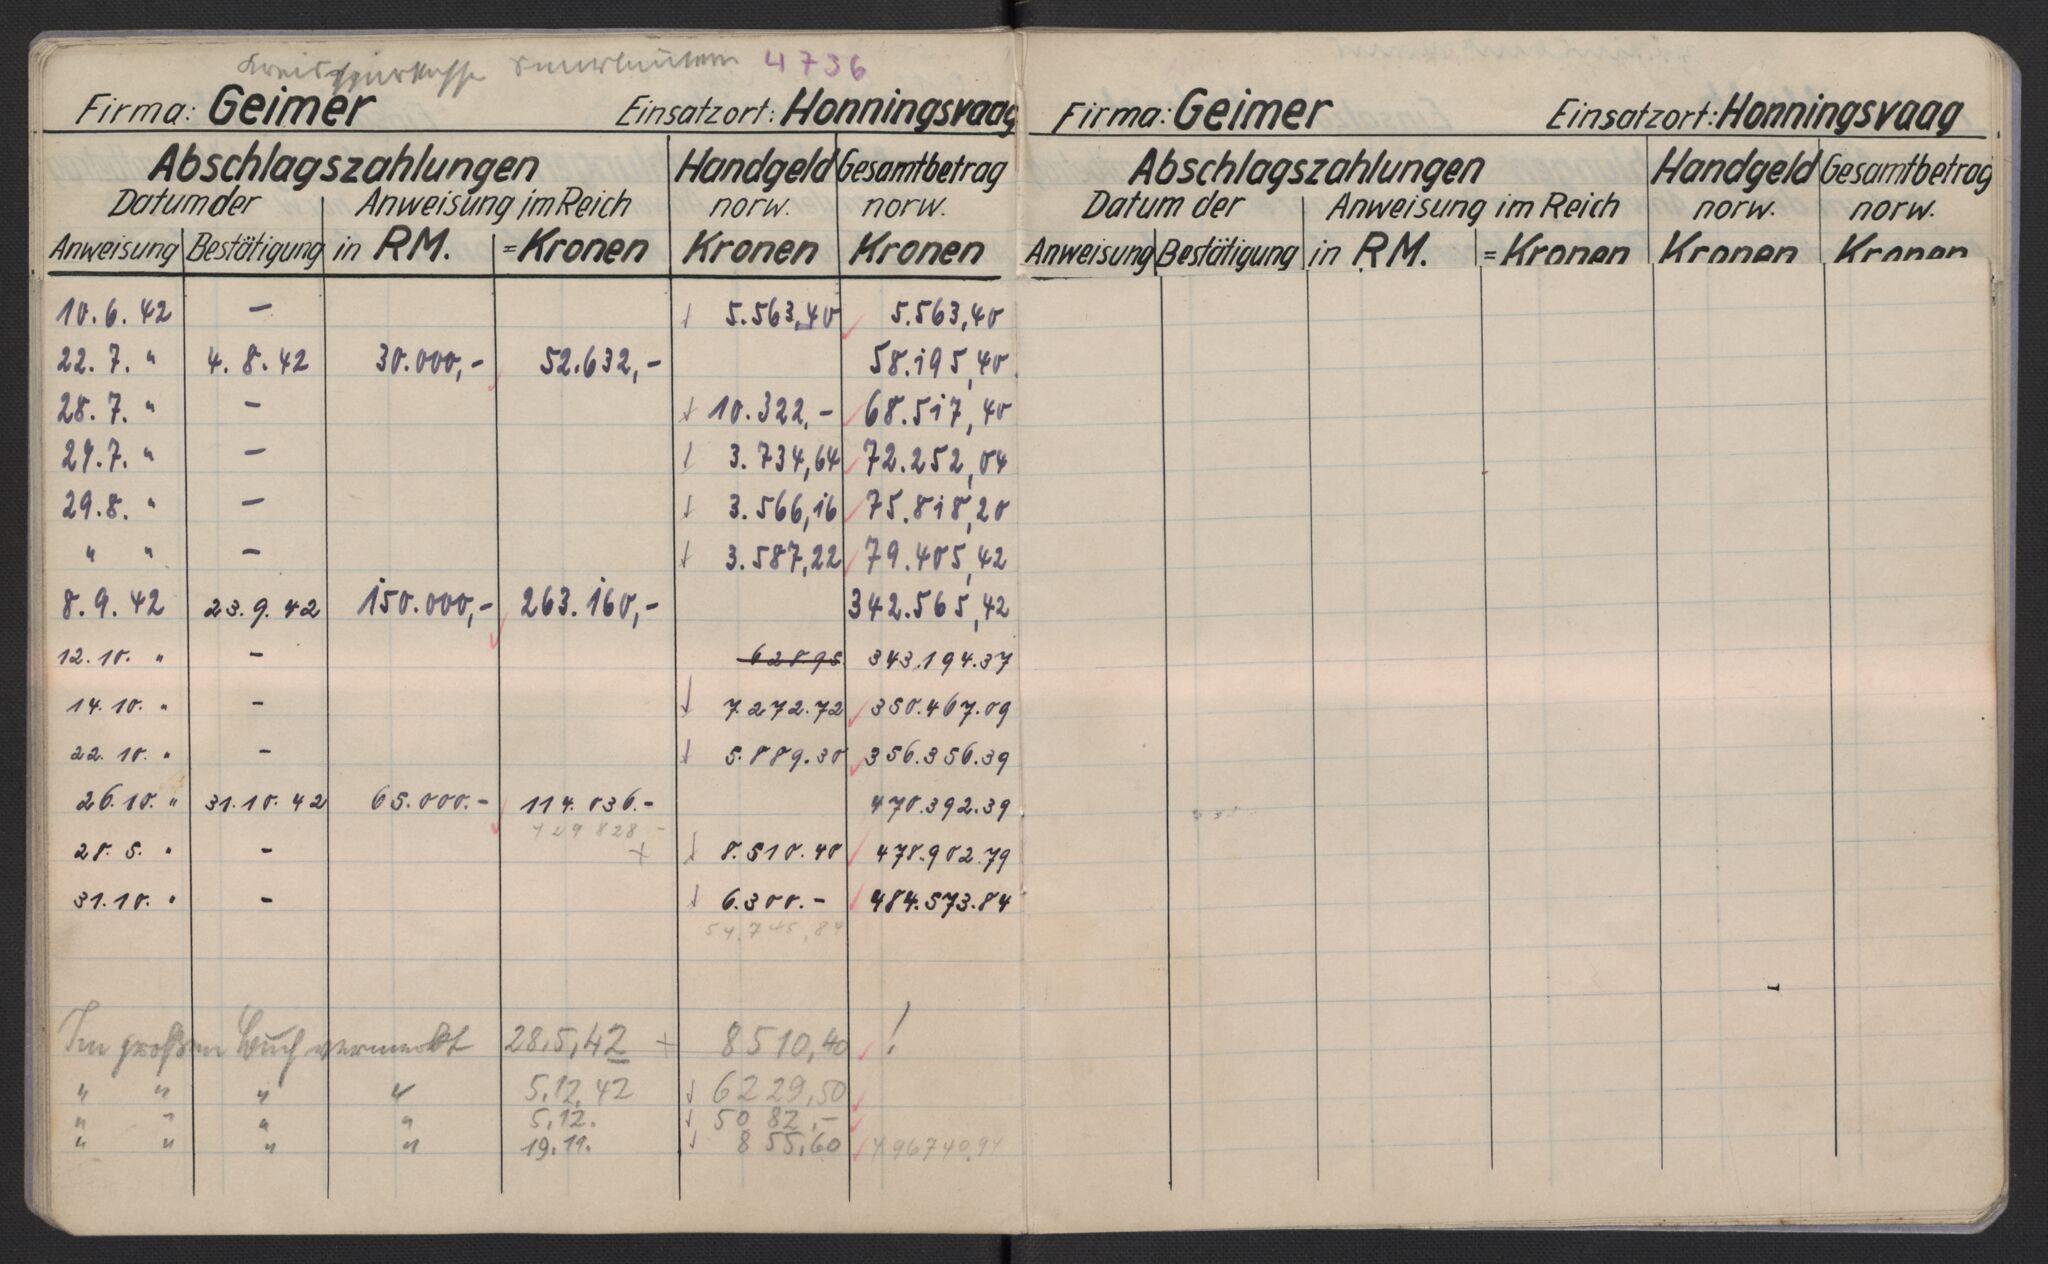 Kreissparkasse Saarlautern 4736
Firma: Geimer Einsatzort: Honningsvaag
Abschlagszahlungen Handgeld Gesamtbetrag
Datum der Anweisung im Reich norw. norw.
Anweisung Bestätigung in RM. = Kronen Kronen Kronen
10.6.42 — 5.563,40 5.563,40
22.7. " 4.8.42 30.000,- 52.632,- 58.195,40
28.7. " — 10.322,- 68.517,40
29.7. " — 3.734,64 72.252,04
29.8. " — 3.566,16 75.818,20
" " — 3.587,22 79.405,42
8.9.42 23.9.42 150.000,- 263.160,- 342.565,42
12.10. " — 628.95 343.194.37
14.10. " — 7.272.72 350.467.09
22.10. " — 5.889.30 356.356.39
26.10. " 31.10.42 65.000.- 114.036.- 470.392.39
429828 -
28.5. " — + 8.510.40 478.902.79
31.10. " — 6.300.- 484.573.84
54.745,84
Im großen Buch vermerkt 28.5.42 + 8510,40 !
" " " " 5.12.42 6229,50
" " " " 5.12. 5082,-
" " " " 19.11. 855,60 496740,94
Firma: Geimer Einsatzort: Honningsvaag
Abschlagszahlungen Handgeld Gesamtbetrag
Datum der Anweisung im Reich norw. norw.
Anweisung Bestätigung in RM. = Kronen Kronen Kronen